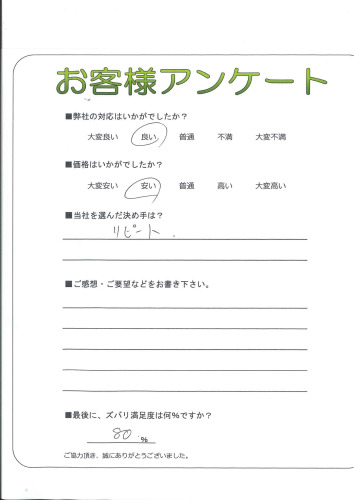 お客様アンケート
■弊社の対応はいかがでしたか？
大変良い 良い 普通 不満 大変不満
■価格はいかがでしたか？
大変安い 安い 普通 高い 大変高い
■当社を選んだ決め手は？
リピート.
■ご感想・ご要望などをお書き下さい。
■最後に、ズバリ満足度は何%ですか？
80 %
ご協力頂き、誠にありがとうございました。